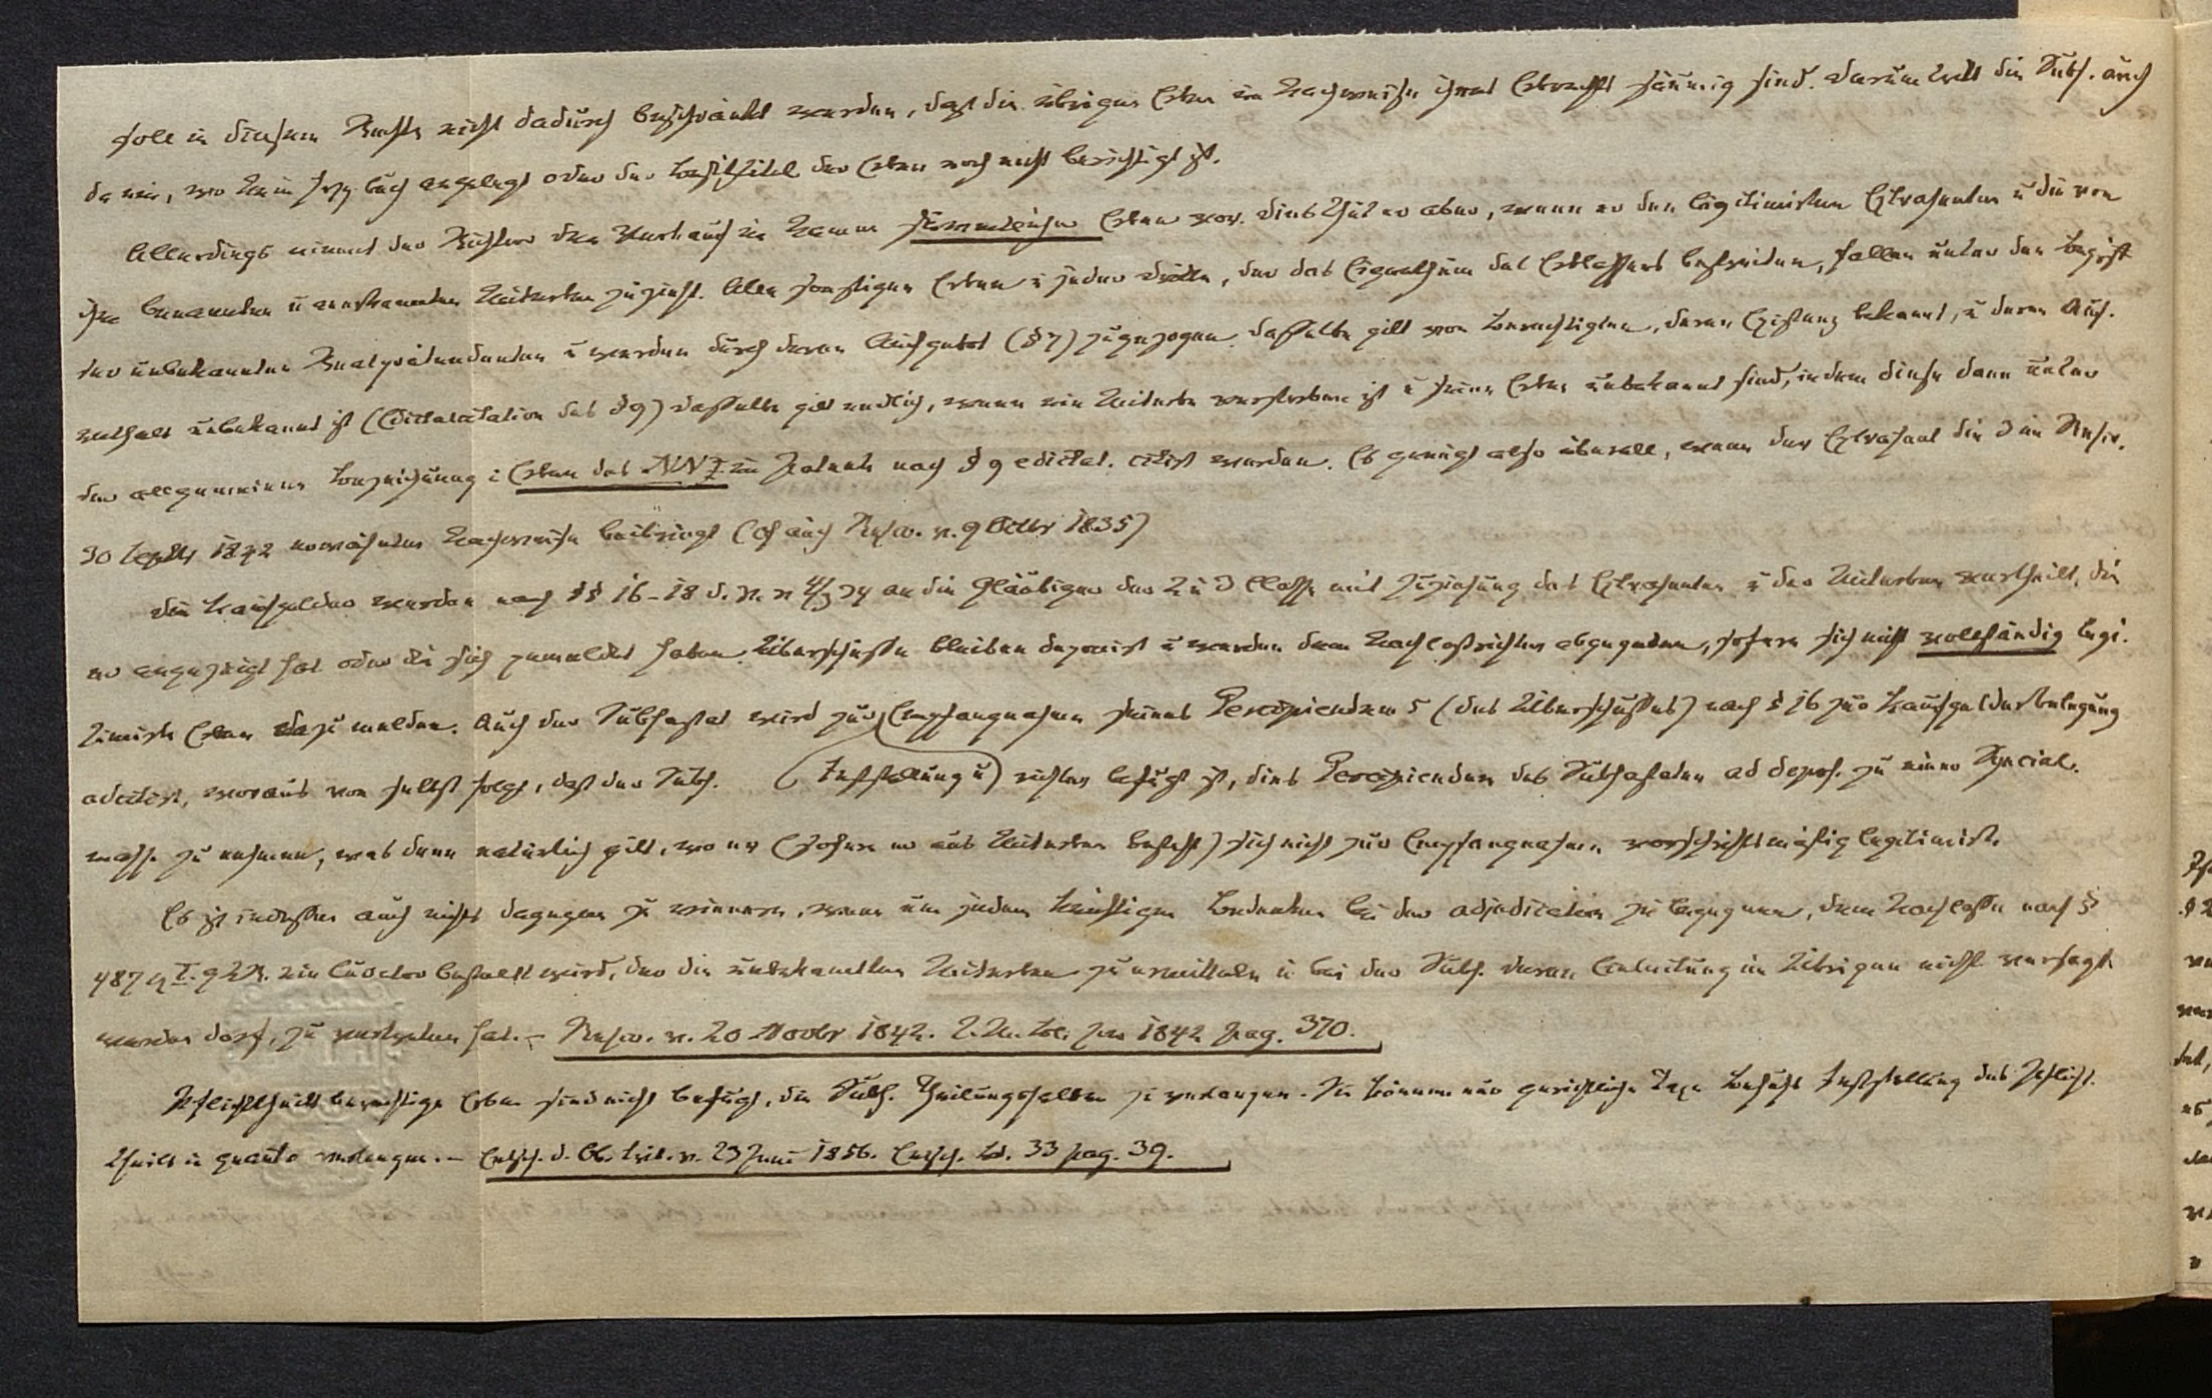 soll in diesem Rechte nicht dadurch beschränkt werden, daß die übrigen Erben im Nachweise ihres Erbrechts säumig sind. Darum tritt die Subh. auch
da ein, wo kein Hyp. buch angelegt oder der Besitztitel der Erben noch nicht berichtigt ist.
Allerdings nimmt der Richter den Verkauf im Namen sämmtlicher Erben vor. Dies thut er aber, wenn er den legitimirten Extrahenten u die von
ihm benannten u anerkannten Miterben zuzieht. Alle sonstigen Erben u jeder Dritte, der das Eigenthum des Erblassers bestreiten, fallen unter den Begriff
der unbekannten Realprätendenten u werden durch deren Aufgebot (§ 7) zugezogen. Dasselbe gilt von Berechtigten, deren Existenz bekannt, u deren Auf-
enthalt unbekannt ist (Edictalcitation des § 9) Dasselbe gilt endlich, wenn ein Miterbe verstorben ist u seine Erben unbekannt sind, indem diese dann unter
der allgemeinen Bezeichnung: Erben des NN im Patente nach § 9 edictal. citirt werden. Es genügt also überall, wenn der Extrahent die im Rescr.
30 Septbr 1842 erwähnten Nachweise beibringt (cf auch Rescr. v. 9 Octbr 1835)
Die Kaufgelder werden nach §§ 16-18 d. V. v 4/3 34 an die Gläubiger der 2 u 3 Classe mit Zuziehung des Extrahenten u der Miterben vertheilt, die
er angezeigt hat oder die sich gemeldet haben. Überschüsse bleiben deponirt u werden dem Nachlaßrichter abgegeben, sofern sich nicht vollständig legi-
timirte Erben dazu melden. Auch der Subhastat wird zur Empfangnahme seines Percipiendums (des Überschusses) nach § 16 zur Kaufgelderbelegung
adcitirt, woraus von selbst folgt, daß der Subh. (Feststellung u) richter befugt ist, dies Percipiendum des Subhastaten ad depos. zu einer Special-
masse zu nehmen, was dann natürlich gilt, wo er (sofern er aus Miterben besteht) sich nicht zur Empfangnahme vorschriftsmäßig legitimirt.
Es ist indessen auch nichts dagegen zu erinnern, wenn um jedem künftigen Bedenken bei der adjudication zu begegnen, dem Nachlasse nach §
487 I. 9 LR. ein Curator bestellt wird, der die unbekannten Miterben zu ermitteln u bei der Subh. deren Einleitung im Übrigen nicht versagt
werden darf, zu vertreten hat. – Rescr. v. 20 Novbr 1842. J. M. Bl. pro 1842 pag. 370.
Pflichttheils berechtigte Erben sind nicht befugt, die Subh. Theilungshalber zu verlangen. Sie können nur gerichtliche Taxe behufs Feststellung des Pflicht-
theils in quanto verlangen. – Entsch. d. Ob. Trib. v. 23 Juni 1856. Entsch. Bd. 33 pag. 39.